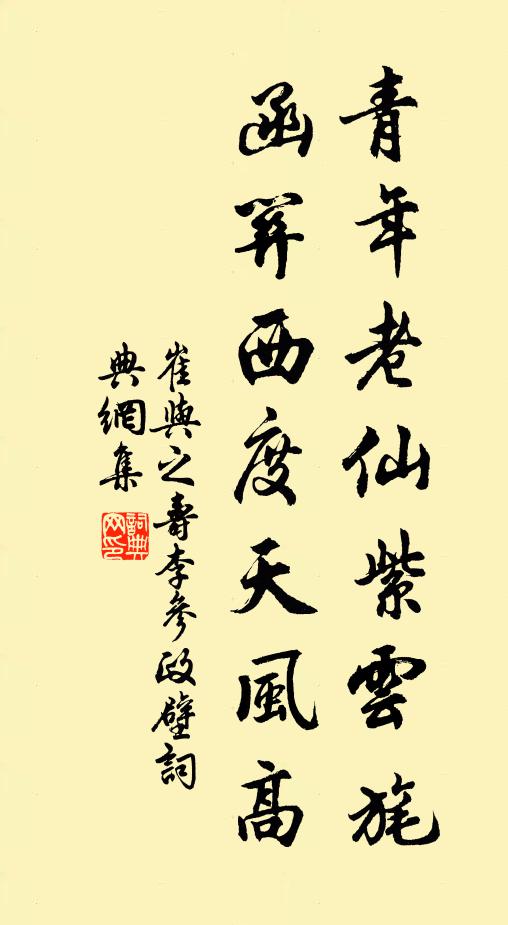 青年老仙紫雲旄
函關西度天風高
崔與之壽李參政壁詞
典網集
詞典網印